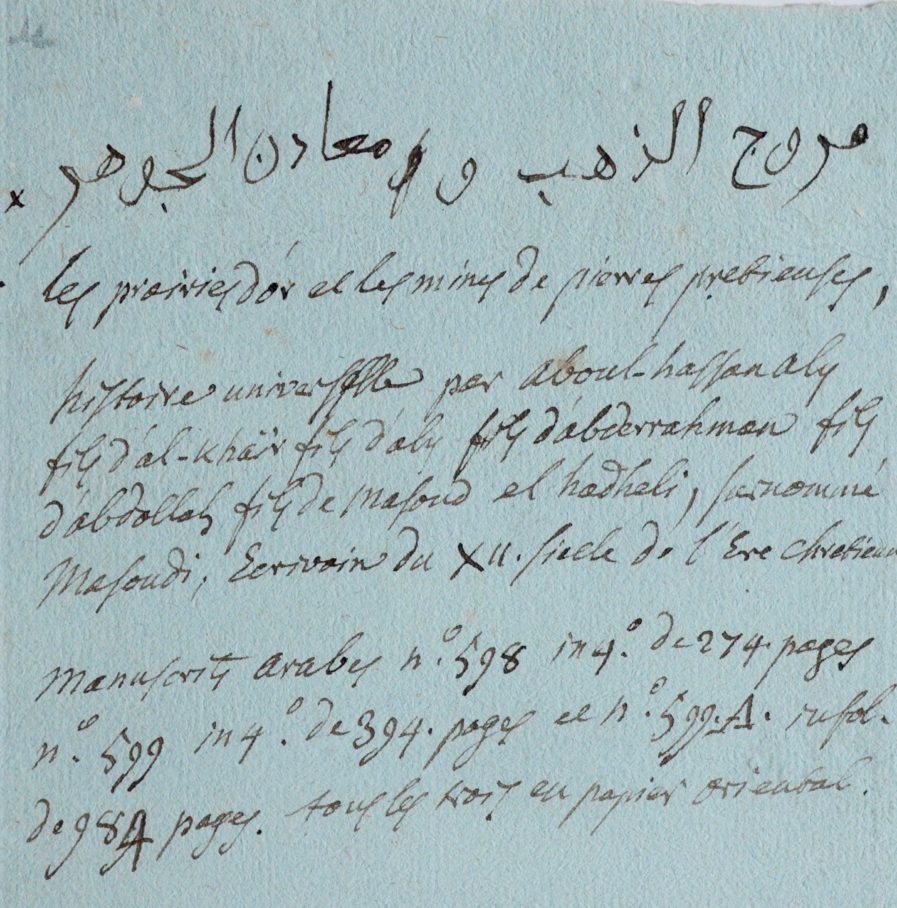 مروج الذهب و معادن الجوهر
les prairies d'or et les mines de pierres pretieuses,
histoire universelle par aboul-hassan aly
fils d'al-khaïr fils d'aly fils d'abderrahman fils
d'abdollah fils de Masoud el hadheli, surnommé
Masoudi, Ecrivain du XII. siecle de l'Ere chretienn
manuscrits arabes n.° 598 in 4.° de 274. pages
n.° 599 in 4.° de 394. pages et n.° 599.A. in fol.
de 984 pages. tous les trois en papier oriental.